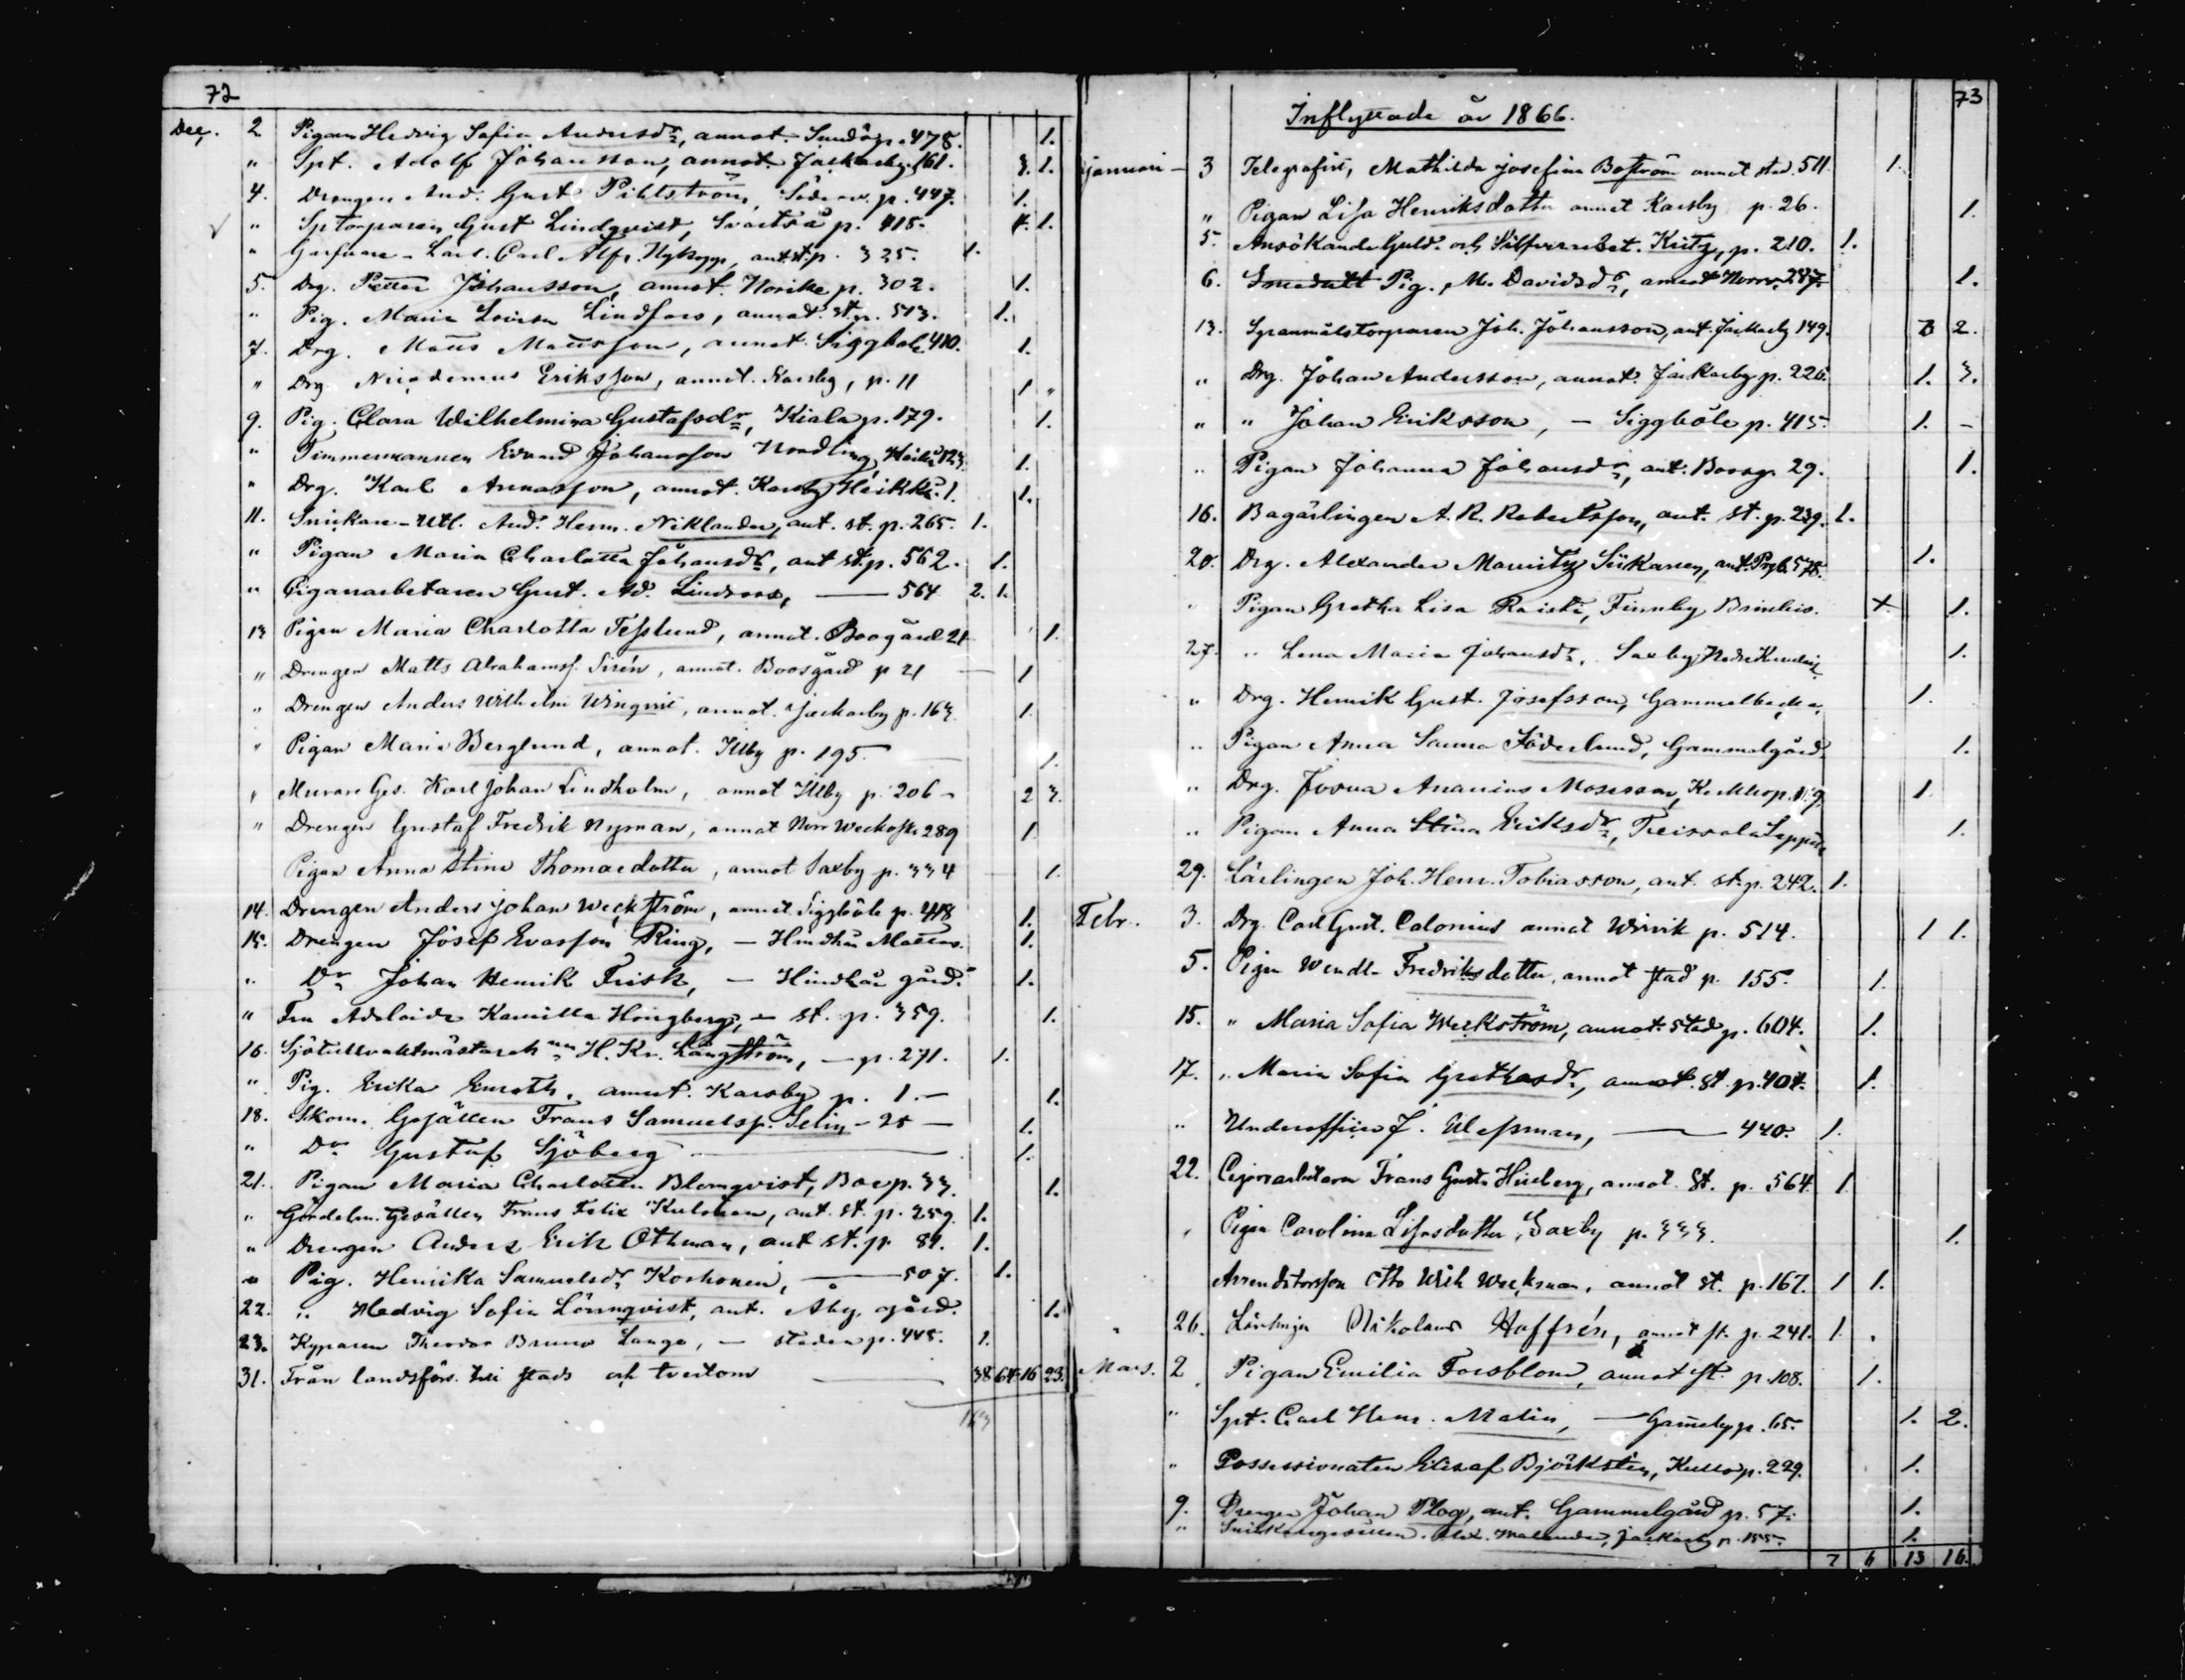 72
Dec. 2 Pigan Hedvig Sofia Andersdr, annot. Sundö p. 478. 1.
" Spt. Adolf Johansson, annot. Jackarby 161. 3. 1.
4. Drengen And. Gust Pihlström, Söderv. p. 447. 1.
" Sptorparen Gust Lindqvist, Svartså p. 415. 4. 1.
" Garfvare-Lärl. Carl Alfr. Nykopp, ant. st. p. 325. 1.
5. Drg. Petter Johansson, annot. Norike p. 302. 1.
" Pig. Maria Lovisa Lindfors, annot. st. p. 513. 1.
7. Drg. Måns Månsson, annot. Siggböle 410. 1.
" Drg Nicodemus Eriksson, annot. Karsby, p. 11 1 "
9. Pig. Clara Wilhelmina Gustafsdr, Kiala p. 179. 1.
" Timmermannen Evard Johansson Nordling, 123. 1.
" Drg. Karl Annasson, annot. Karsby Heikki. 1. 1.
11. Snickare-Utl. And. Herm. Niklander, ant. st. p. 265. 1.
" Pigan Maria Charlotta Johansdr, ant st. p. 562. 1.
" Cigarrarbetaren Gust. Ad. Lindroos, — 564 2. 1.
13 Pigan Maria Charlotta Tesslund, annot. Boogård 21 1.
" Drengen Matts Abrahamss. Sirén, annot. Boosgård p 21 — 1
" Drengen Anders Wilhelm Winqvist, annot. Jackarby p. 163 1.
" Pigan Maria Berglund, annot. Illby p. 195 — 1.
" Murare Ges. Karl Johan Lindholm, annot Illby p. 206 - 2 3.
" Drengen Gustaf Fredrik Nyman, annot Norr Weckoski 289 1
Pigan Anna Stina Thomasdotter, annot Saxby p. 334 1.
14. Drengen Anders Johan Weckström, annot Siggböle p. 418 1.
15. Drengen Josef Evasson Ring, — Hindhår Mattas. 1.
" Do Johan Henrik Frisk, — Hindhår gård. 1.
" Fru Adelaide Kamilla Hougberg, — st. p. 359. 1.
16. H. Kr. Långström, — p. 271. 1.
" Pig. Erika Enroth, annot. Karsby p. 1. — 1.
18. Skom. Gesällen Frans Samuelss. Selin - 25 — 1.
" Do Gustaf Sjöberg — 1.
21. Pigan Maria Charlotta Blomqvist, Boe p. 33. 1.
" Gördelm. Gesällen Frans Felix Kulonen, ant. st. p. 259. 1.
" Drengen Anders Erik Othman, ant st. p. 81. 1.
" Pig. Henrika Samuelsdr Korhonen, — 507. 1.
22. " Hedvig Sofia Lönnqvist, ant. Åby gård. 1.
23. Kyparen Theodor Bruno Lange, — staden p. 445. 1.
31. Från landsförs. till stads och tvertom — 38 64 16 23.
163
73
Inflyttade år 1866.
Januari - 3 Telegrafist, Mathilda Josefina Boström annot stad. 511. 1.
" Pigan Lisa Henriksdotter annot Karsby p. 26. 1.
5. Ansökande Guld- och Silfverarbet. Kritz, p. 210. 1.
6. Pig. M. Davidsdr, annot Norrv. 287. 1.
13. Spannmålstorparen Joh. Johansson, ant. Jackarby 149. 3 2.
" Drg. Johan Andersson, annot. Jackarby p. 226. 1. 3.
" " Johan Eriksson, — Siggböle p. 415. 1. -
" Pigan Johanna Johansdr, ant. Boosg. 29. 1.
16. Bagarlingen A. R. Robertsson, ant. st. p. 239. 1.
20. Drg. Alexander Mauritz Siikanen, ant. Prgb. 578. 1.
" Pigan Gretha Lisa Raisti, Finnby Brinkis. + 1.
27. " Lena Maria Johansdr, Saxby 1.
" Drg. Henrik Gust. Josefsson, Gammelbacka. 1.
" Pigan Anna Sanna Söderlund, Gammelgård. 1.
" Drg. Josua Ananias Mosesson, Kerkko p. 159 1.
" Pigan Anna Stina Eriksdr, Treissala Seppälä 1.
29. Lärlingen Joh. Henr. Tobiasson, ant. st. p. 242. 1.
Febr. 3. Drg. Carl Gust. Calonius annot Wirvik p. 514. 1 1.
5. Pigan Wendla Fredriksdotter, annot stad p. 155. 1.
15. " Maria Sofia Weckström, annot stad p. 604. 1.
17. " Maria Sofia Grethasdr, annot. st. p. 404. 1.
" Underofficer J. — 440. 1.
22. Cigarrarbetaren Frans Gust. Hinberg, annot. St. p. 564 1
" Pigan Carolina Lisasdotter, Saxby p. 333. 1.
Arrendatorsson Otto Wilh Weckman, annot st. p. 167. 1 1.
" 26. Lärlingen Nikolaus Haffrén, annot st. p. 241. 1.
Mars. 2 Pigan Emilia Forsblom, annot st. p. 108. 1.
" Spt. Carl Henr. Malin, — Gammelby p. 65. 1. 2.
" Possessionaten Gustaf Björkstén, Kullo p. 229. 1.
9. Drengen Johan Plog, ant. Gammelgård p. 57. 1.
" Snickaregesällen. Alex. Malander, Jackarby p. 155. 1.
7 6 13 16.